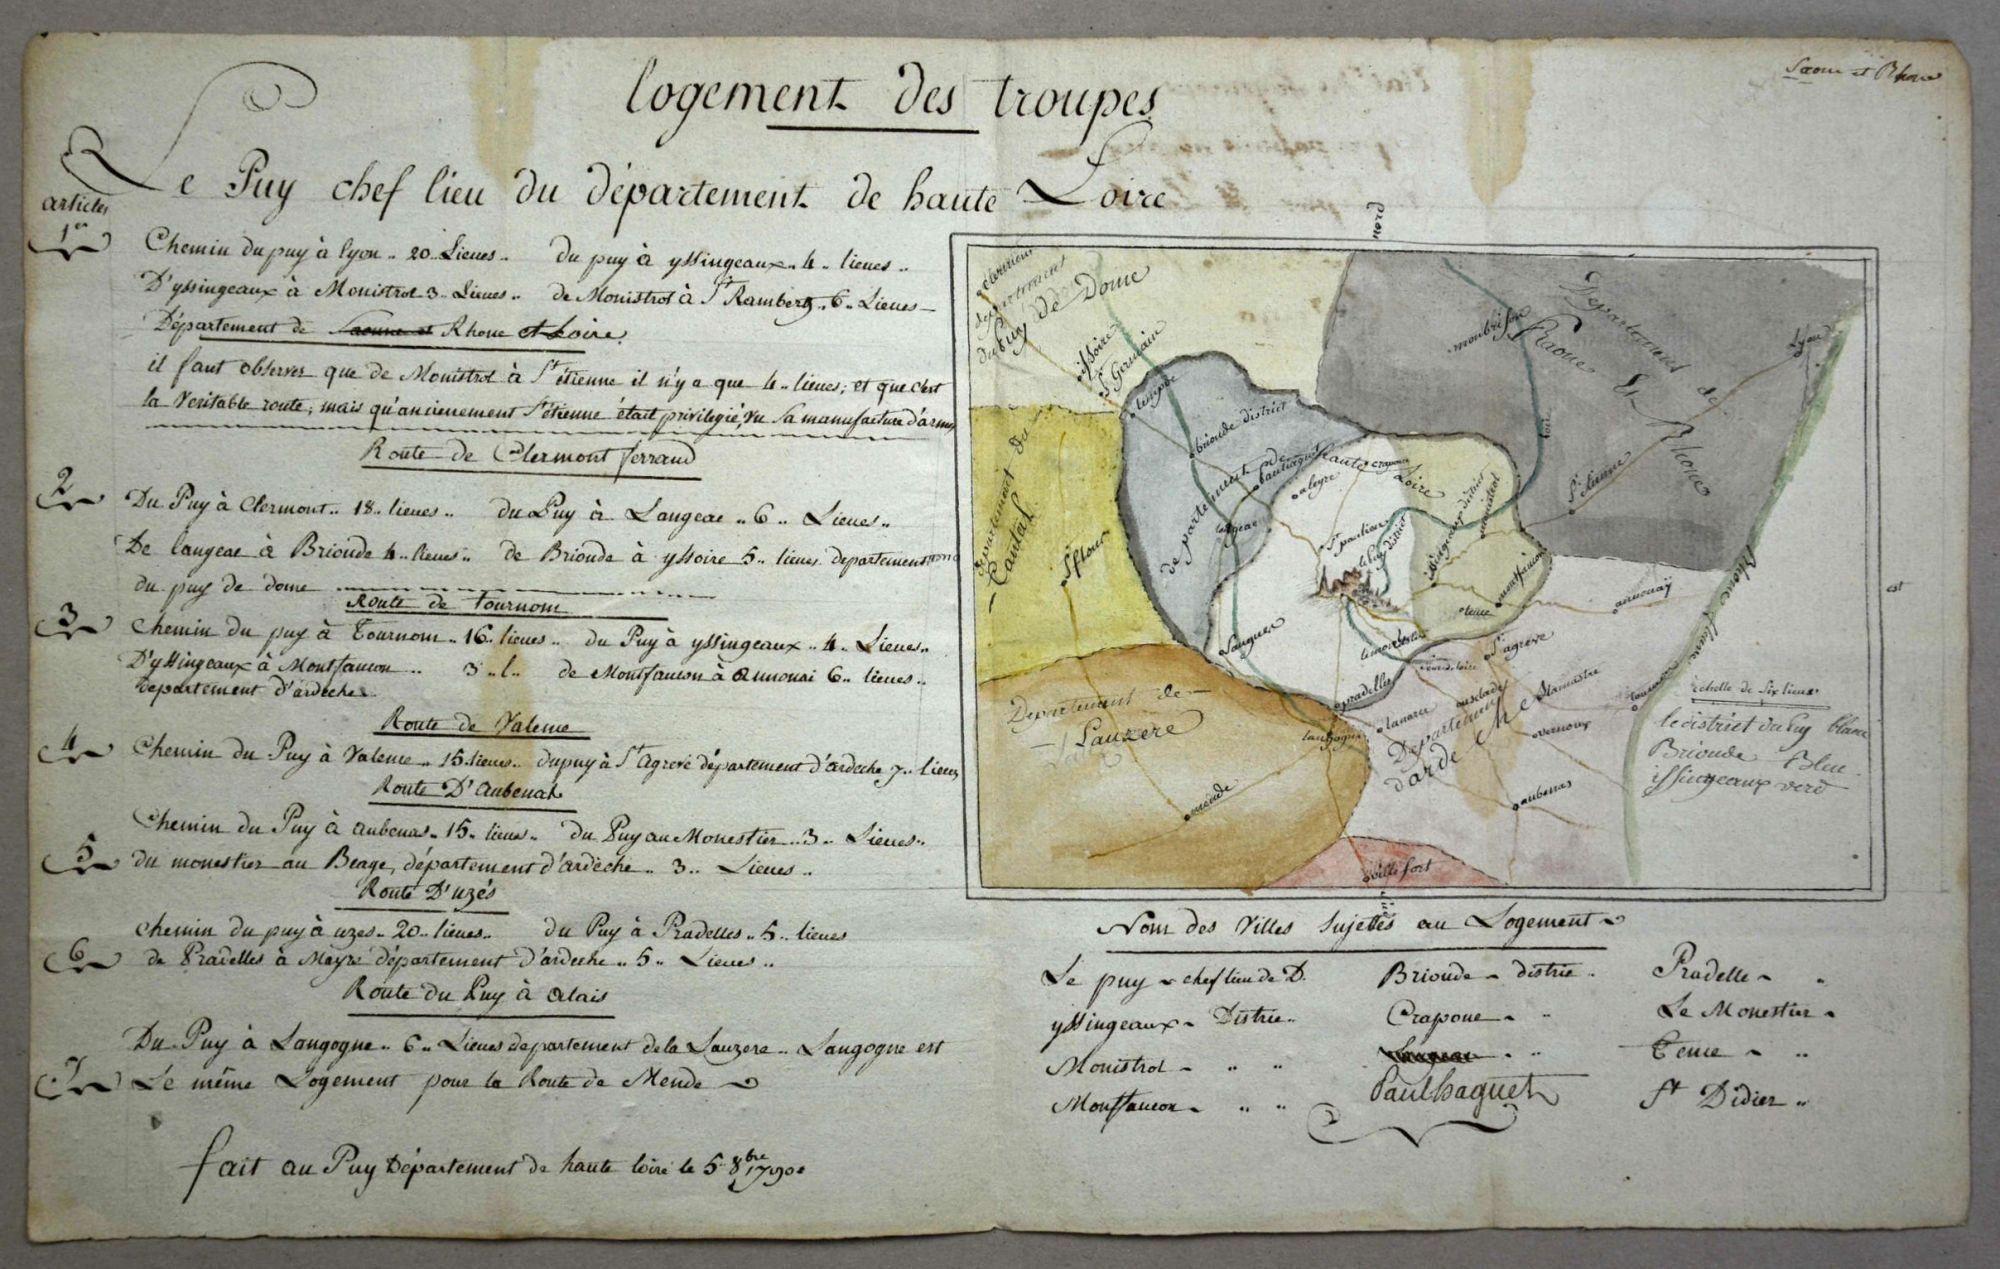 Saone et Rhone
logement des troupes
Le Puy chef lieu du département de haute Loire
articles
1er
Chemin du puy à lyon .. 20 Lieues .. du puy à yssingeaux .. 4 .. lieues ..
D'yssingeaux à Monistrol 3 .. Lieues .. de Monistrol à St Rambert .. 6 .. Lieues
Département de Saonne et Rhone et Loire.
il faut observer que de Monistrol à St étienne il n'y a que 4 .. lieues; et que c'est
la Veritable route; mais qu'ancienement St étienne était privilegié, vu sa manufacture d'armes
Route de Clermont ferrand
2
Du Puy à Clermont .. 18 .. lieues .. du Puy à Langeac .. 6 .. Lieues ..
De langeac à Brioude 4 .. lieues .. de Brioude à yssoire 5 .. lieues departement
du puy de dome
Route de tournom
3
Chemin du puy à Tournom .. 16 .. lieues .. du Puy à yssingeaux .. 4 .. Lieues ..
D'yssingeaux à Montfaucon .. 3 .. l .. de Montfaucon à Annonai 6 .. lieues ..
Departement d'ardèche
Route de Valence
4
Chemin du Puy à Valence .. 15 lieues .. du puy à St Agreve département d'ardeche 7 .. lieues
Route D'aubenas
5
Chemin du Puy à aubenas .. 15 .. lieues .. du Puy au Monestier .. 3 .. Lieues ..
du monestier au Beage, département d'ardèche .. 3 .. Lieues ..
Route D'uzés
6
chemin du puy à uzes .. 20 .. lieues .. du Puy à Pradelles .. 5 .. lieues
de Pradelles à Mayre département d'ardeche .. 5 .. Lieues ..
Route du Puy à Alais
7
Du Puy à Langogne .. 6 .. Lieues departement de la Lauzere .. Langogne est
Le même Logement pour la Route de Mende
fait au Puy Département de haute loire le 5 8bre 1790
nord
clermont
departement
du Puy de Dome
issoire
St Germain
lempde
brioude district
montbrison
Departement de
Saone et Rhone
Lyon
loire
St étienne
departement du
Cantal
St flour
departement de haute Loire
paulhaguet
craponne
alegre
langeac
St paulien
le Puy district
issingeaux district
monistrol
montfaucon
tence
annonay
Rhone fleuve
est
Saugues
limonestier
St agreve
pradelles
langogne
lanarce
usclades
lamastre
vernoux
tournon
Departement
d'ardeche
aubenas
Departement de
Lauzere
mende
villefort
echelle de six lieues
le district du Puy blanc
Brioude Bleu
issingeaux verd
Nom des Villes Sujettes au Logement
Le puy chef lieu de D. Brioude distric .. Pradelle
yssingeaux Distric .. Crapone .. Le Monestier
Monistrol .. .. Tence ..
Montfaucon .. .. Paulhaguet St Didier ..